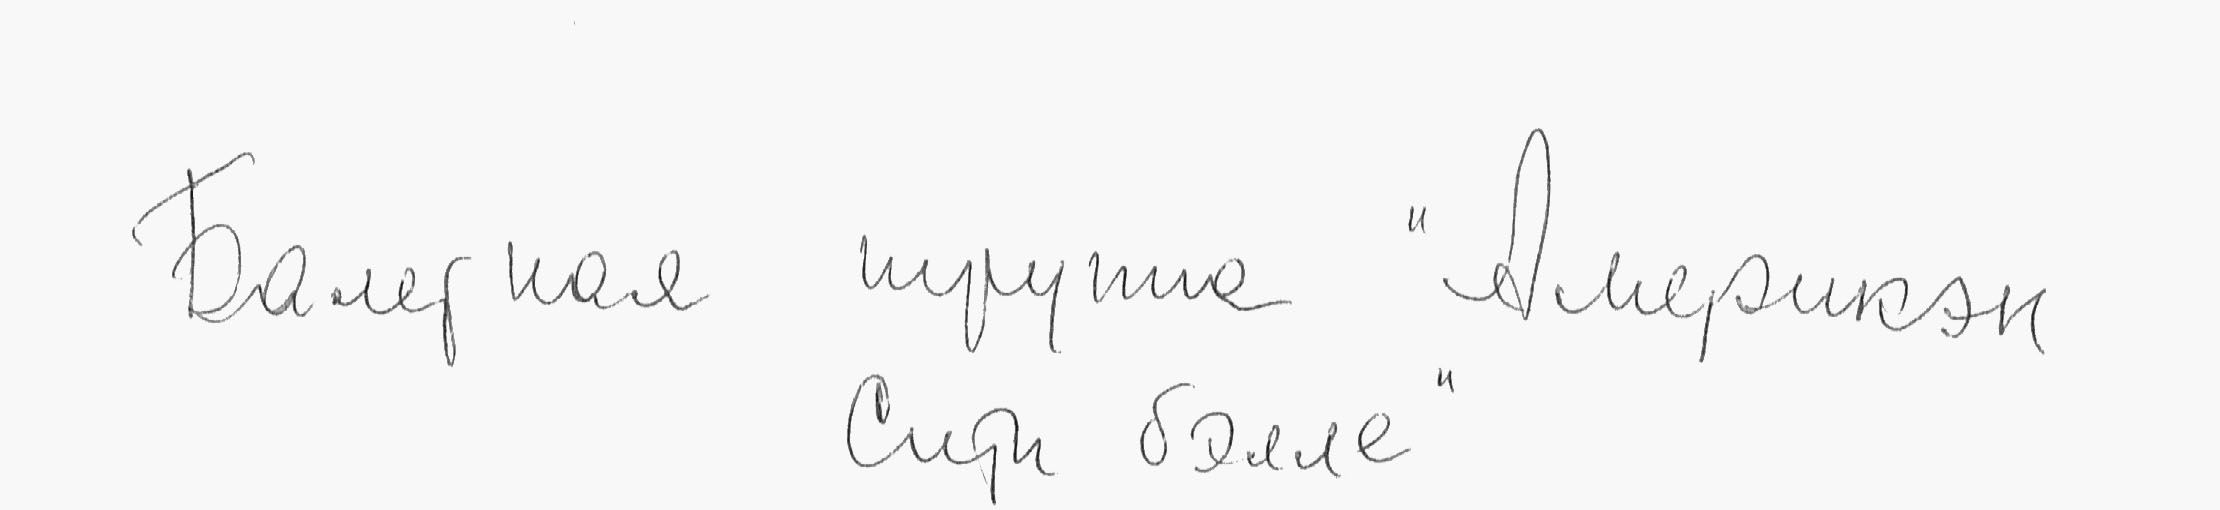 Балетная труппа "Америкэн
Сити бэлле"